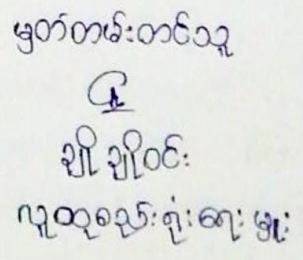 မှတ်တမ်းတင်သူ
ချို ချိုဝင်း
လူထုစည်းရုံးရေးမှူး